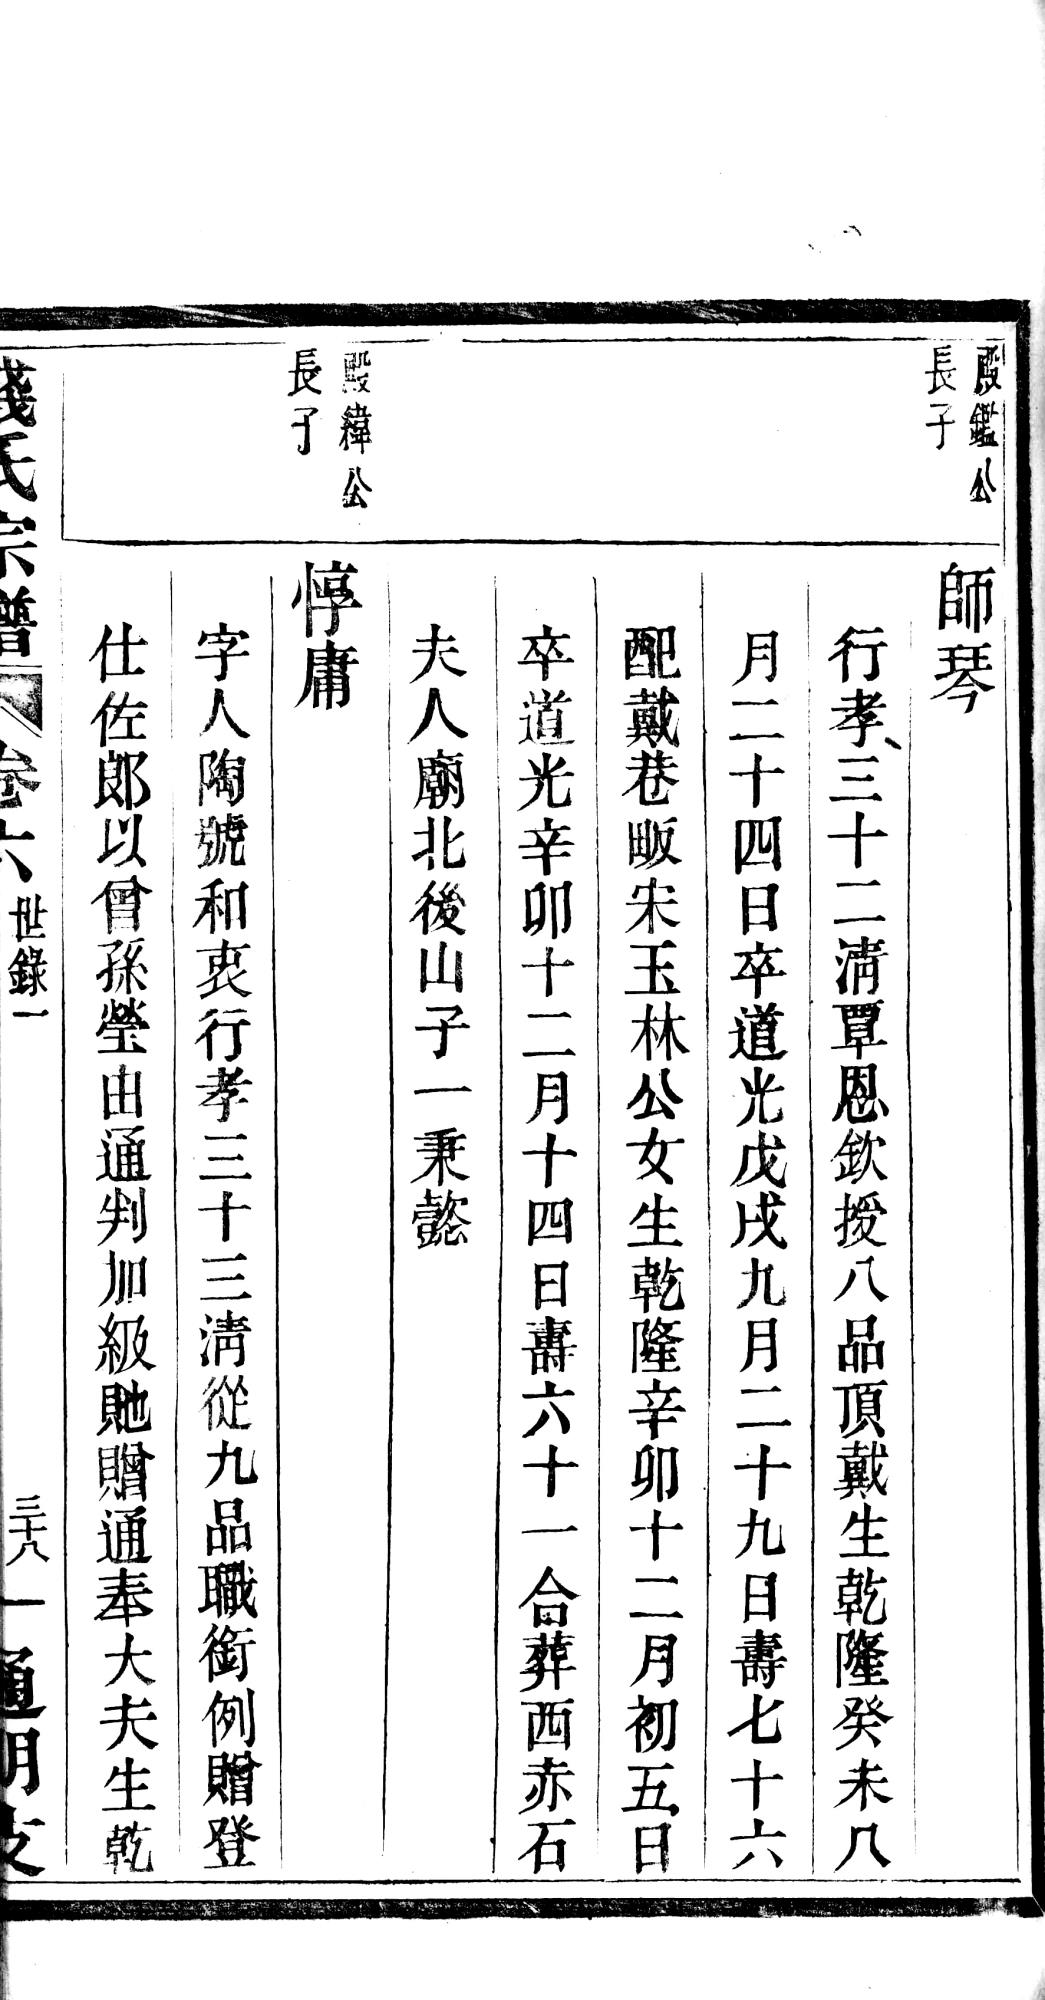 殿鑑公
長子
師琴
行孝三十二淸覃恩欽授八品頂戴生乾隆癸未八
月二十四日卒道光戊戌九月二十九日壽七十六
配戴巷畈宋玉林公女生乾隆辛卯十二月初五日
卒道光辛卯十二月十四日壽六十一合葬西赤石
夫人廟北後山子一秉懿
殿緯公
長子
惇庸
字人陶號和衷行孝三十三淸從九品職銜例贈登
仕佐郎以曾孫瑩由通判加級貤贈通奉大夫生乾
錢氏宗譜
卷六
世錄一
三十八
通明支